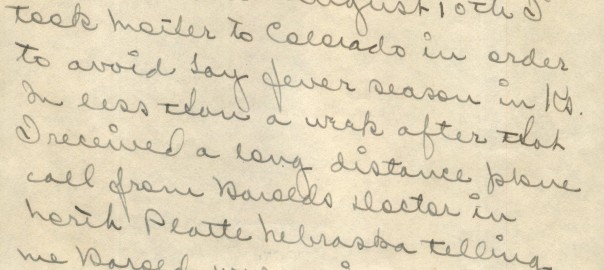 August 10th I
took mother to Colorado in order
to avoid hay fever season in Ks.
In less than a week after that
I received a long distance phone
call from Harolds Doctor in
North Platte Nebraska telling
me Harold